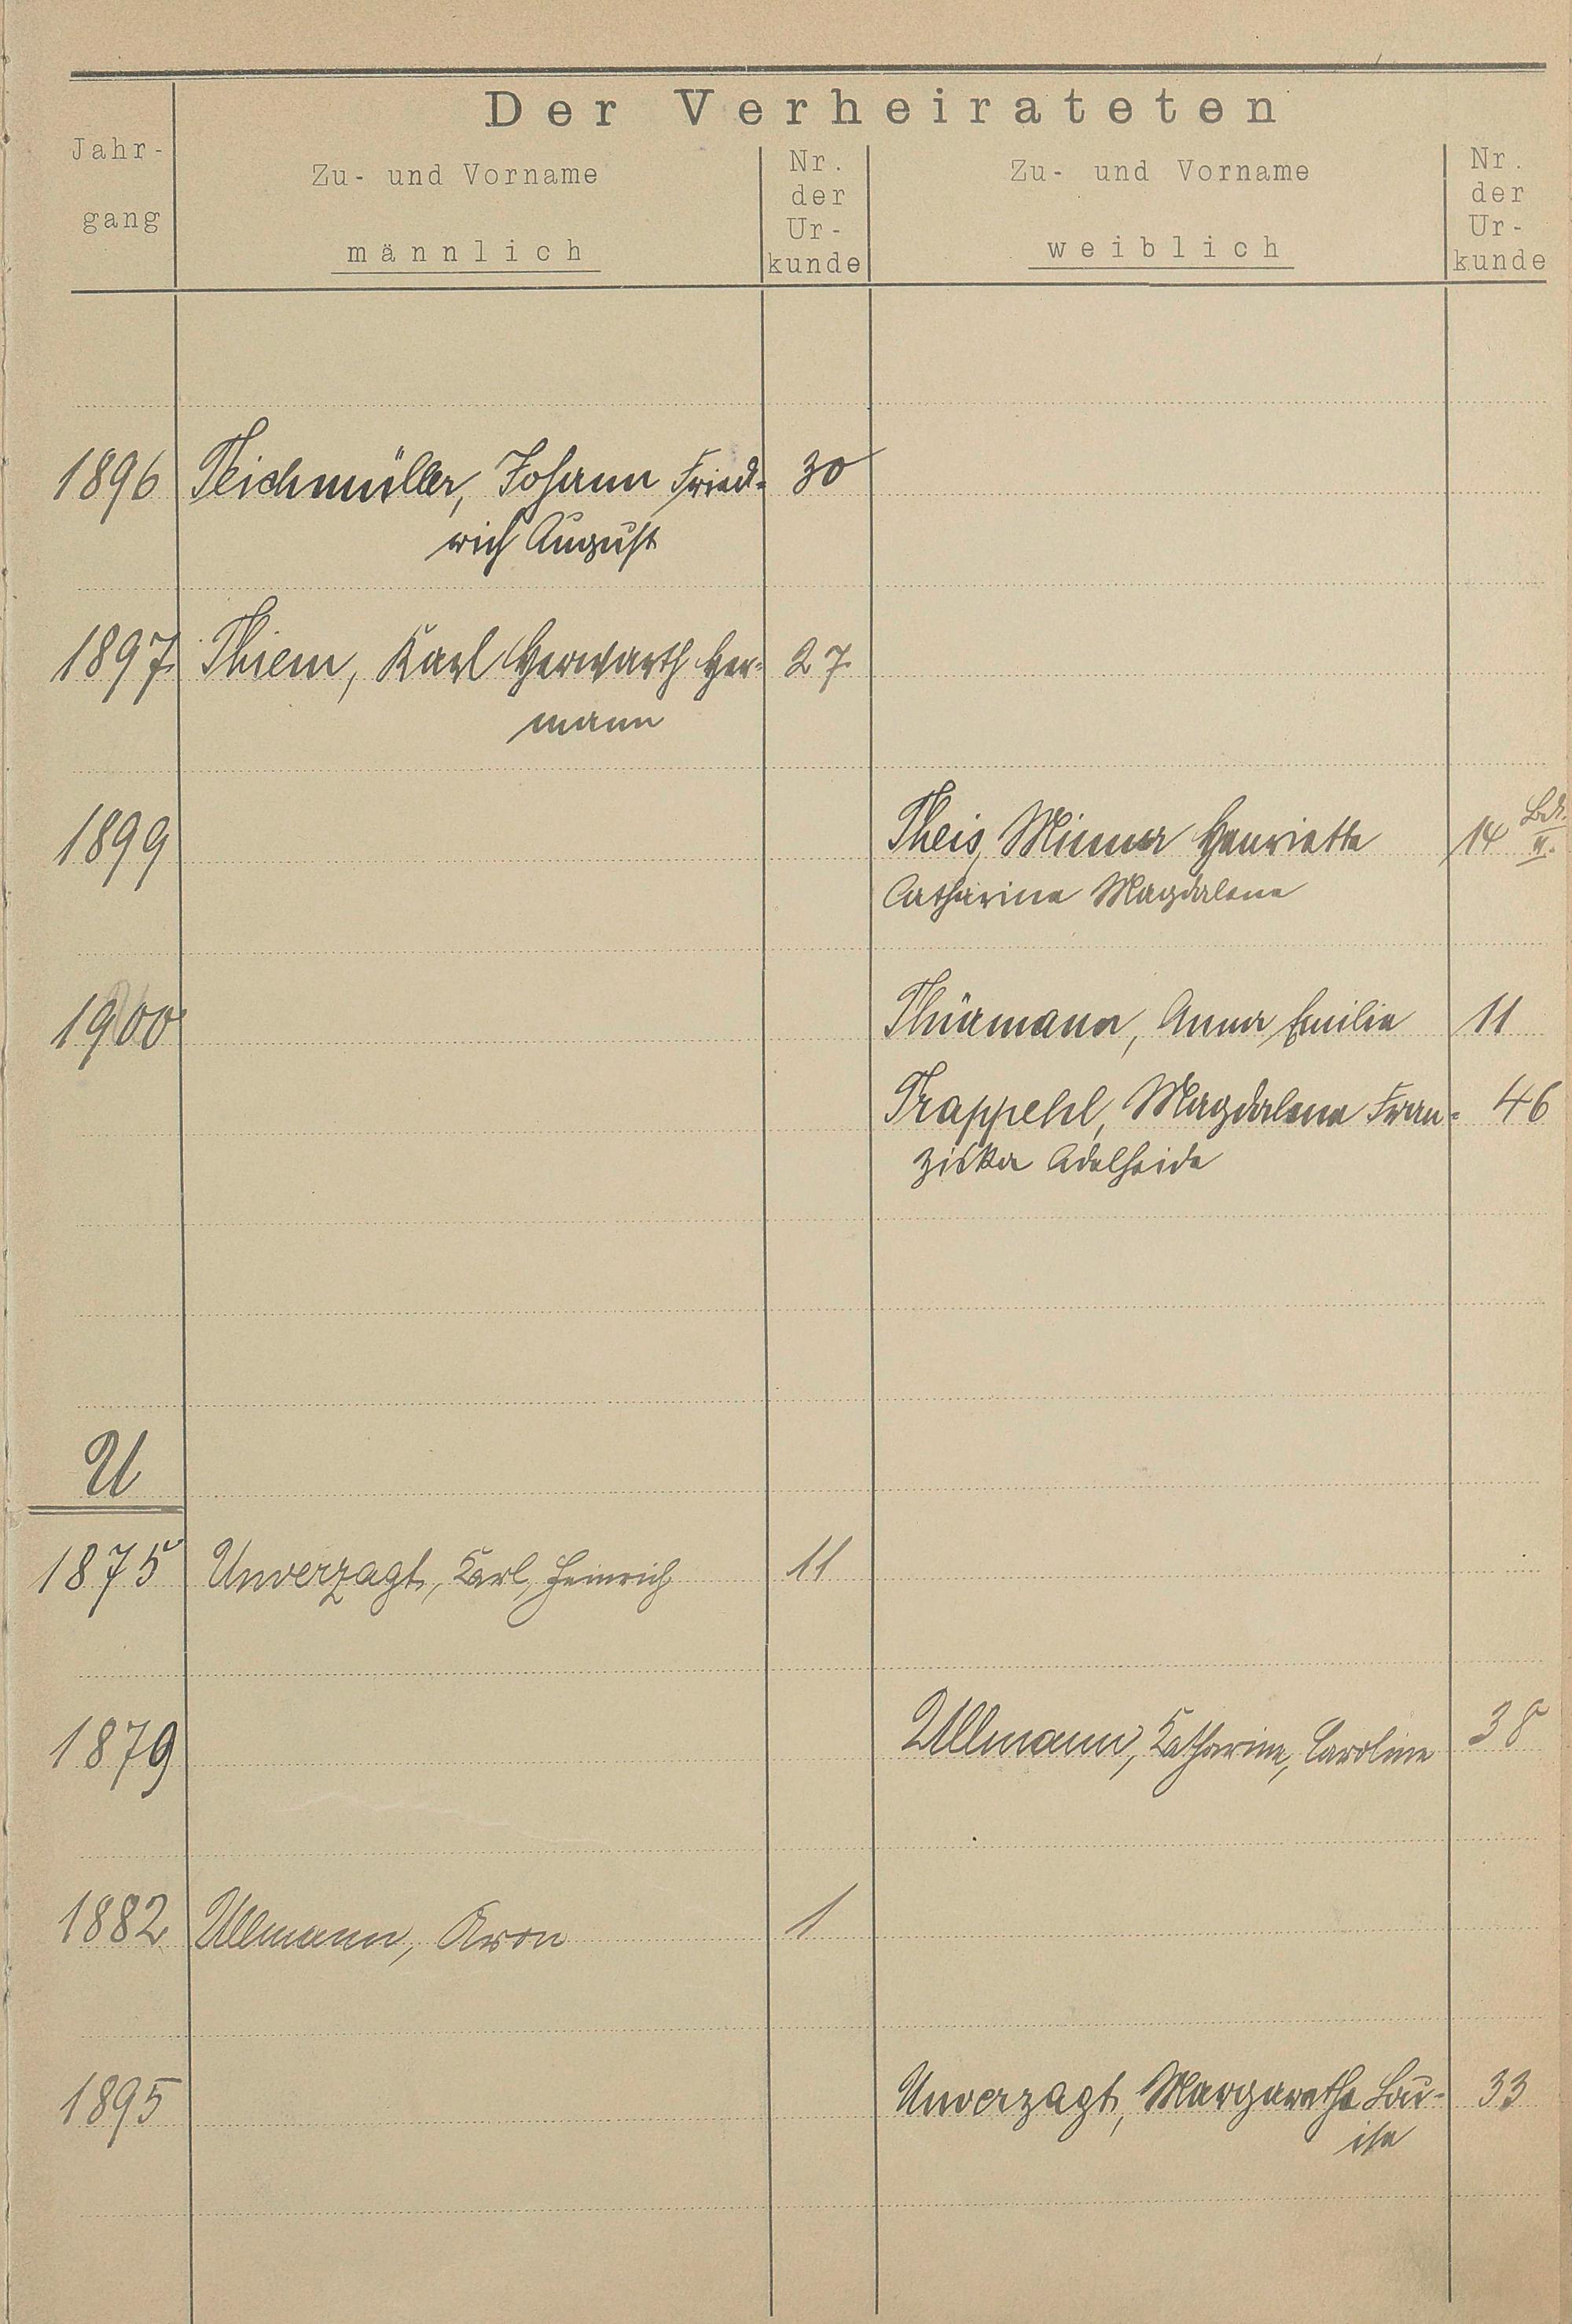 Der Verheirateten
Jahr-
gang
Zu- und Vorname
männlich
Nr.
der
Ur-
kunde
Zu- und Vorname
weiblich
Nr.
der
Ur-
kunde
1896 Teichmüller, Johann Fried- 30
rich August
1897 Thiem, Karl Herwarth Her- 27
mann
1899 Theis, Minna Henriette 14 Bd. II.
Catharine Magdalene
1900 Thürmann, Anna Emilie 11
Trappehl, Magdalena Fran- 46
ziska Adelheide
U
1875 Unverzagt, Karl, Heinrich 11
1879 Ullmann, Katharine, Caroline 38
1882 Ullmann, Aron 1
1895 Unverzagt, Margarethe Lou- 33
ise